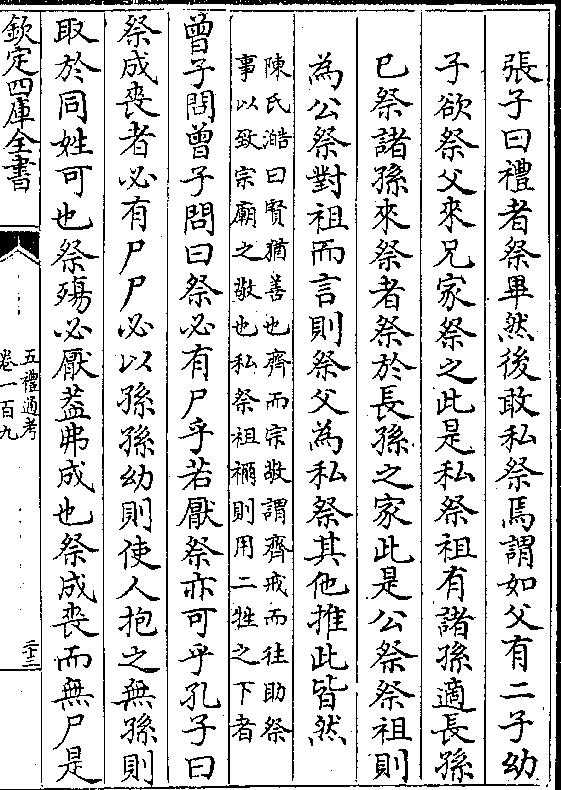 張子曰禮者祭畢然後敢私祭焉謂如父有二子幼
子欲祭父來兄家祭之此是私祭祖有諸孫適長孫
已祭諸孫來祭者祭於長孫之家此是公祭祭祖則
為公祭對祖而言則祭父為私祭其他推此皆然
陳氏澔曰賢猶善也齊而宗敬謂齊戒而往助祭
事以致宗廟之敬也私祭祖禰則用二牲之下者
曾子問曾子問曰祭必有尸乎若厭祭亦可乎孔子曰
祭成喪者必有尸尸必以孫孫幼則使人抱之無孫則
取於同姓可也祭殤必厭葢弗成也祭成喪而無尸是
欽定四庫全書
五禮通考
卷一百九
二十三